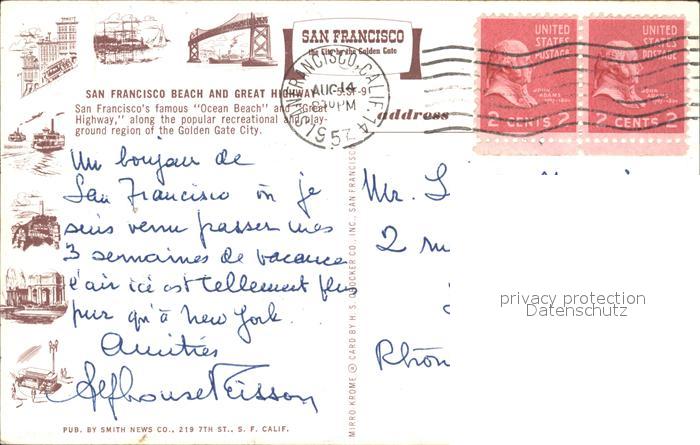 SAN FRANCISCO
the City by the Golden Gate
SAN FRANCISCO, CALIF. 14
AUG 14
PM
1957
UNITED STATES POSTAGE
JOHN ADAMS
2 CENTS 2
UNITED STATES POSTAGE
JOHN ADAMS
2 CENTS 2
SAN FRANCISCO BEACH AND GREAT HIGHWAY
San Francisco's famous "Ocean Beach" and "Great
Highway," along the popular recreational and play-
ground region of the Golden Gate City.
address
Un bonjour de
San Francisco où je
suis venu passer mes
3 semaines de vacance
l'air ici est tellement plus
pur qu'à New York.
Amitiés
Alphonse
Mr.
2
Rhôn
privacy protection
Datenschutz
MIRRO-KROME ® CARD BY H. S. CROCKER CO., INC., SAN FRANCISCO
PUB. BY SMITH NEWS CO., 219 7TH ST., S. F. CALIF.